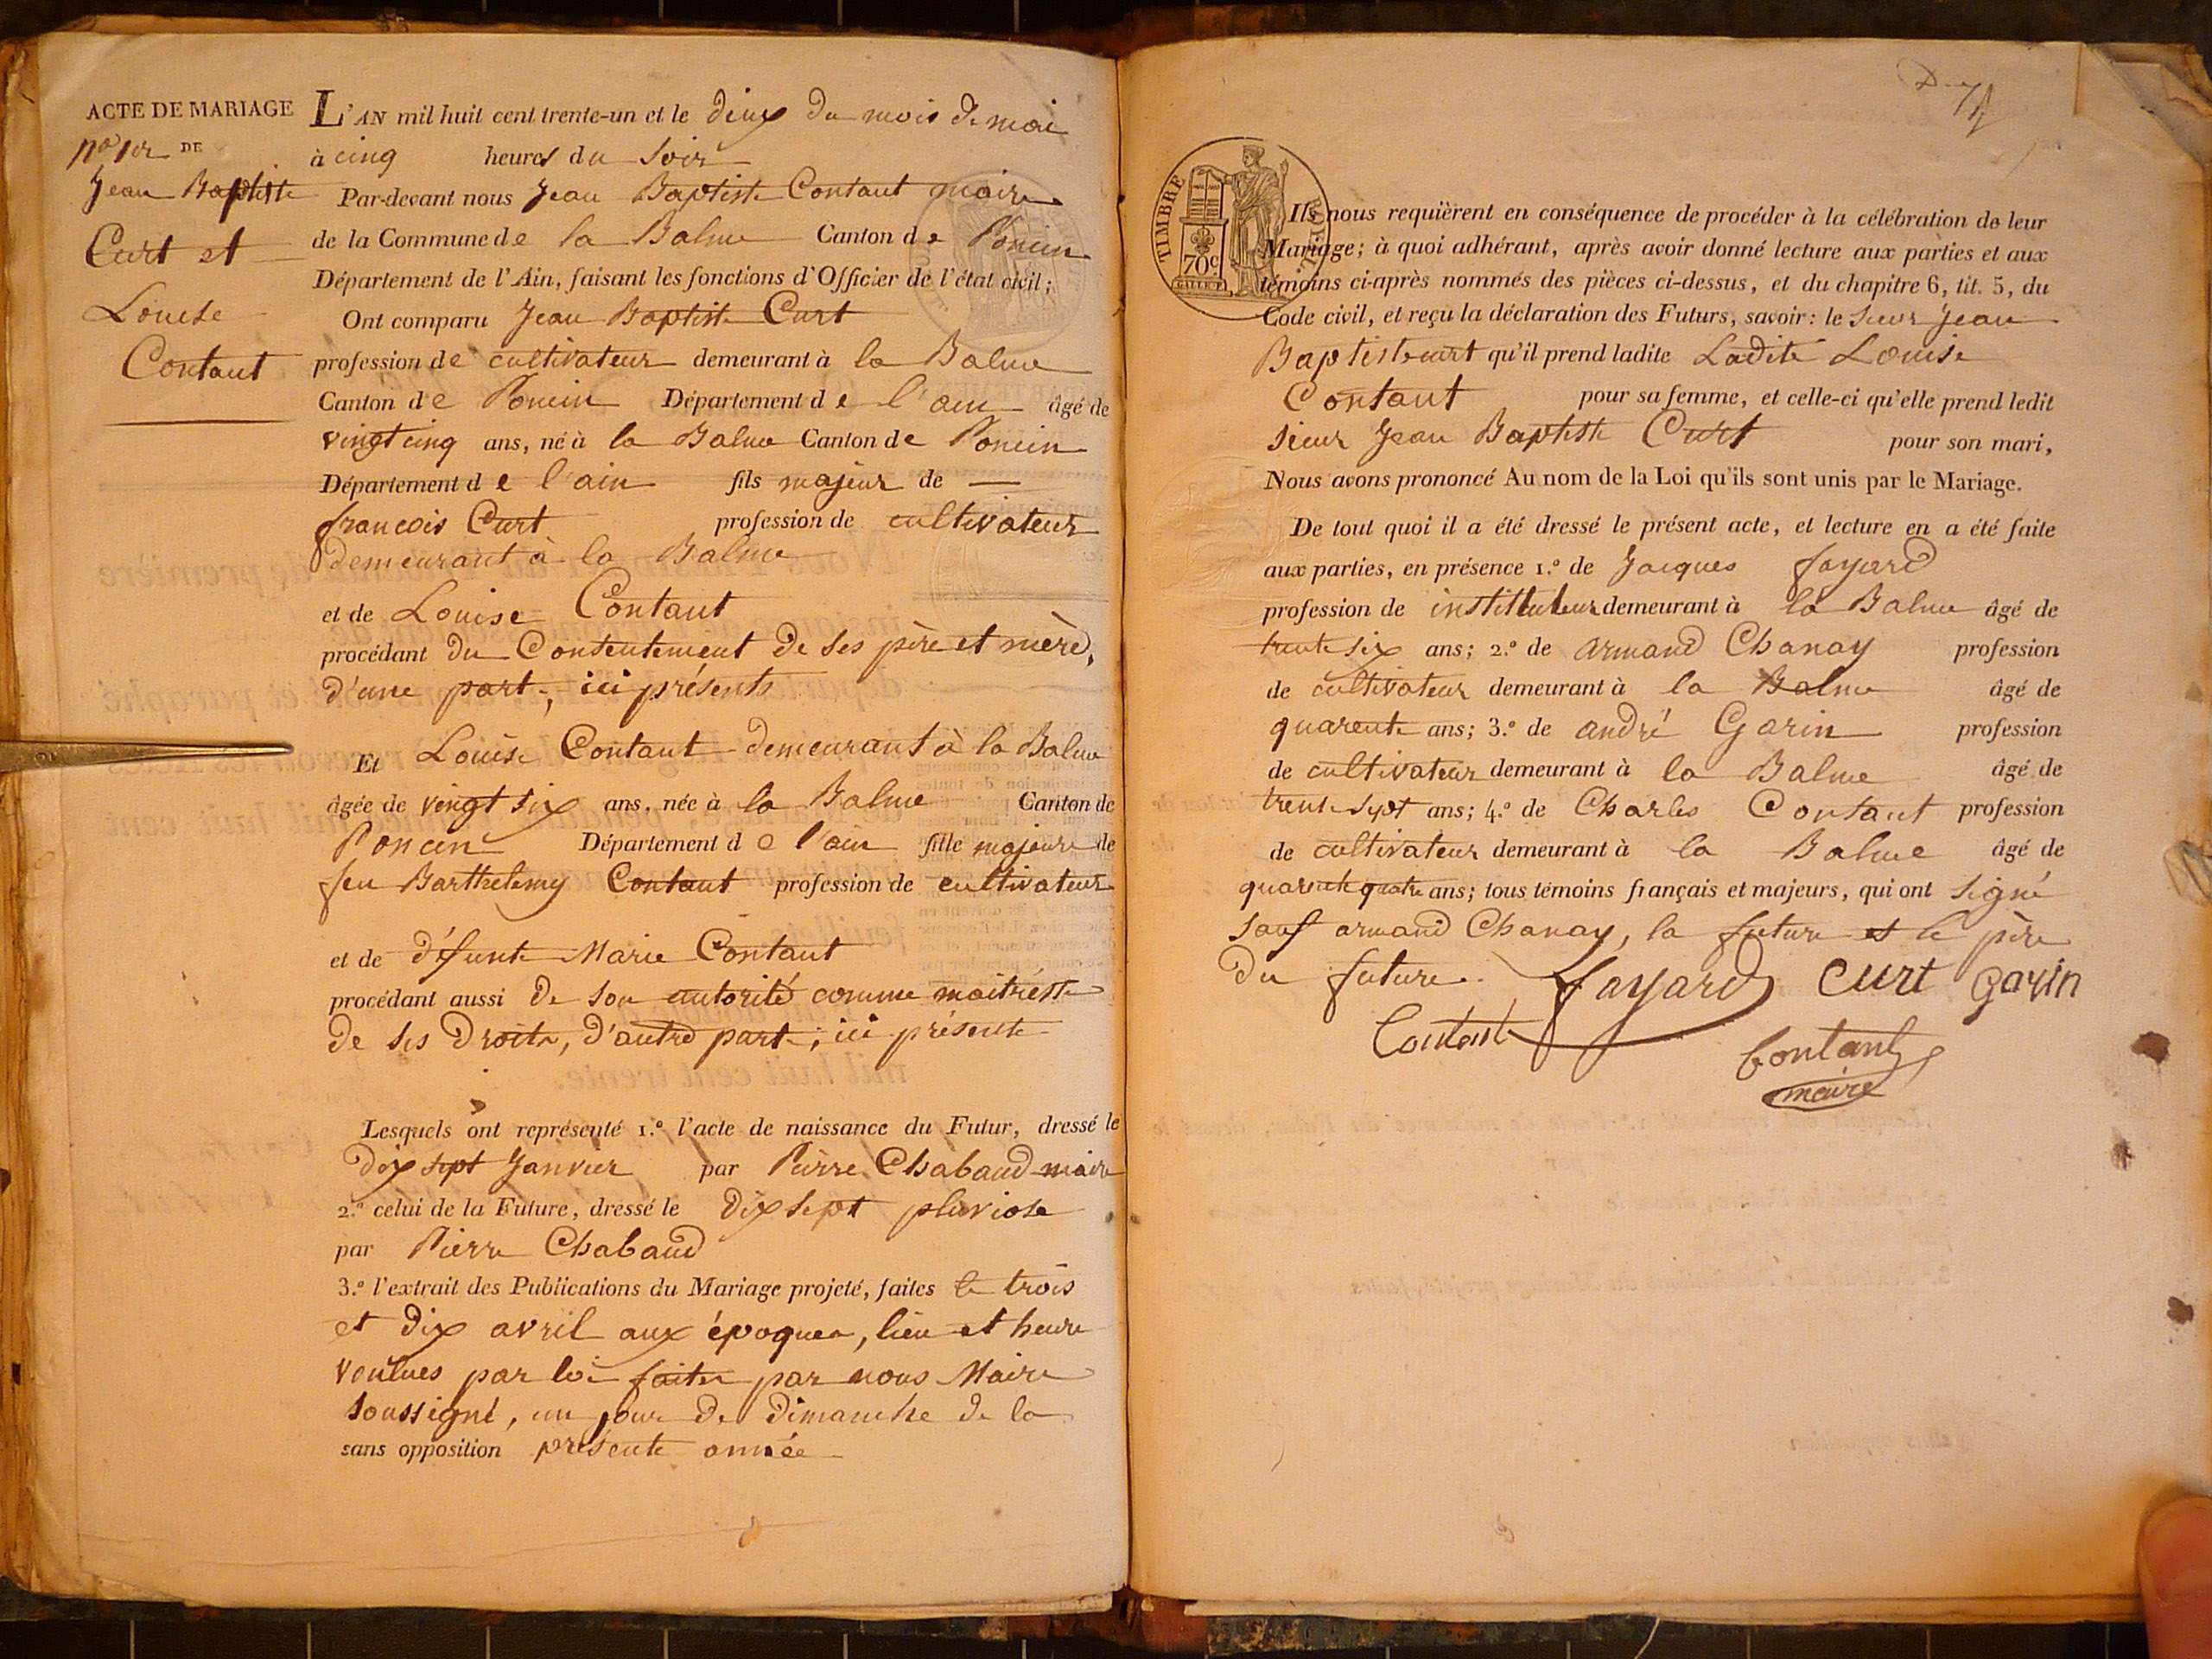 ACTE DE MARIAGE
no 1er DE
Jean Baptiste
Curt et
Louise
Contant
L'AN mil huit cent trente-un et le deux du mois de mai
à cinq heures du soir
Par-devant nous Jean Baptiste Contant maire
de la Commune de la Balme Canton de Poncin
Département de l'Ain, faisant les fonctions d'Officier de l'état civil;
Ont comparu Jean Baptiste Curt
profession de cultivateur demeurant à la Balme
Canton de Poncin Département de l'ain âgé de
vingt cinq ans, né à la Balme Canton de Poncin
Département de l'ain fils majeur de
francois Curt profession de cultivateur
demeurant à la Balme
et de Louise Contant
procédant du Consentement de ses père et mère,
d'une part, ici présents
Et Louise Contant demeurant à la Balme
âgée de vingt six ans, née à la Balme Canton de
Poncin Département de l'ain fille majeure de
feu Barthelemy Contant profession de cultivateur
et de défunte Marie Contant
procédant aussi de son autorité comme maitresse
de ses Droits, d'autre part, ici présente
Lesquels ont représenté 1.º l'acte de naissance du Futur, dressé le
dix sept Janvier par Pierre Chabaud maire
2.º celui de la Future, dressé le dix sept pluviose
par Pierre Chabaud
3.º l'extrait des Publications du Mariage projeté, faites le trois
et dix avril aux époques, lieu et heure
voulues par loi faites par nous Maire
soussigné, un jour de Dimanche de la
sans opposition présente année
TIMBRE ROYAL
70c
Ils nous requièrent en conséquence de procéder à la célébration de leur
Mariage; à quoi adhérant, après avoir donné lecture aux parties et aux
témoins ci-après nommés des pièces ci-dessus, et du chapitre 6, tit. 5, du
Code civil, et reçu la déclaration des Futurs, savoir: le sieur Jean
Baptiste curt qu'il prend ladite Ladite Louise
Contant pour sa femme, et celle-ci qu'elle prend ledit
sieur Jean Baptiste Curt pour son mari,
Nous avons prononcé Au nom de la Loi qu'ils sont unis par le Mariage.
De tout quoi il a été dressé le présent acte, et lecture en a été faite
aux parties, en présence 1.º de Jacques fayard
profession de instituteur demeurant à la Balme âgé de
trente six ans; 2.º de armand Chanay profession
de cultivateur demeurant à la Balme âgé de
quarente ans; 3.º de andré Garin profession
de cultivateur demeurant à la Balme âgé de
trente sept ans; 4.º de Charles Contant profession
de cultivateur demeurant à la Balme âgé de
quarente quatre ans; tous témoins français et majeurs, qui ont signé
sauf armand Chanay, la future et le père
du future. fayard Curt garin
Contant
Contant
maire